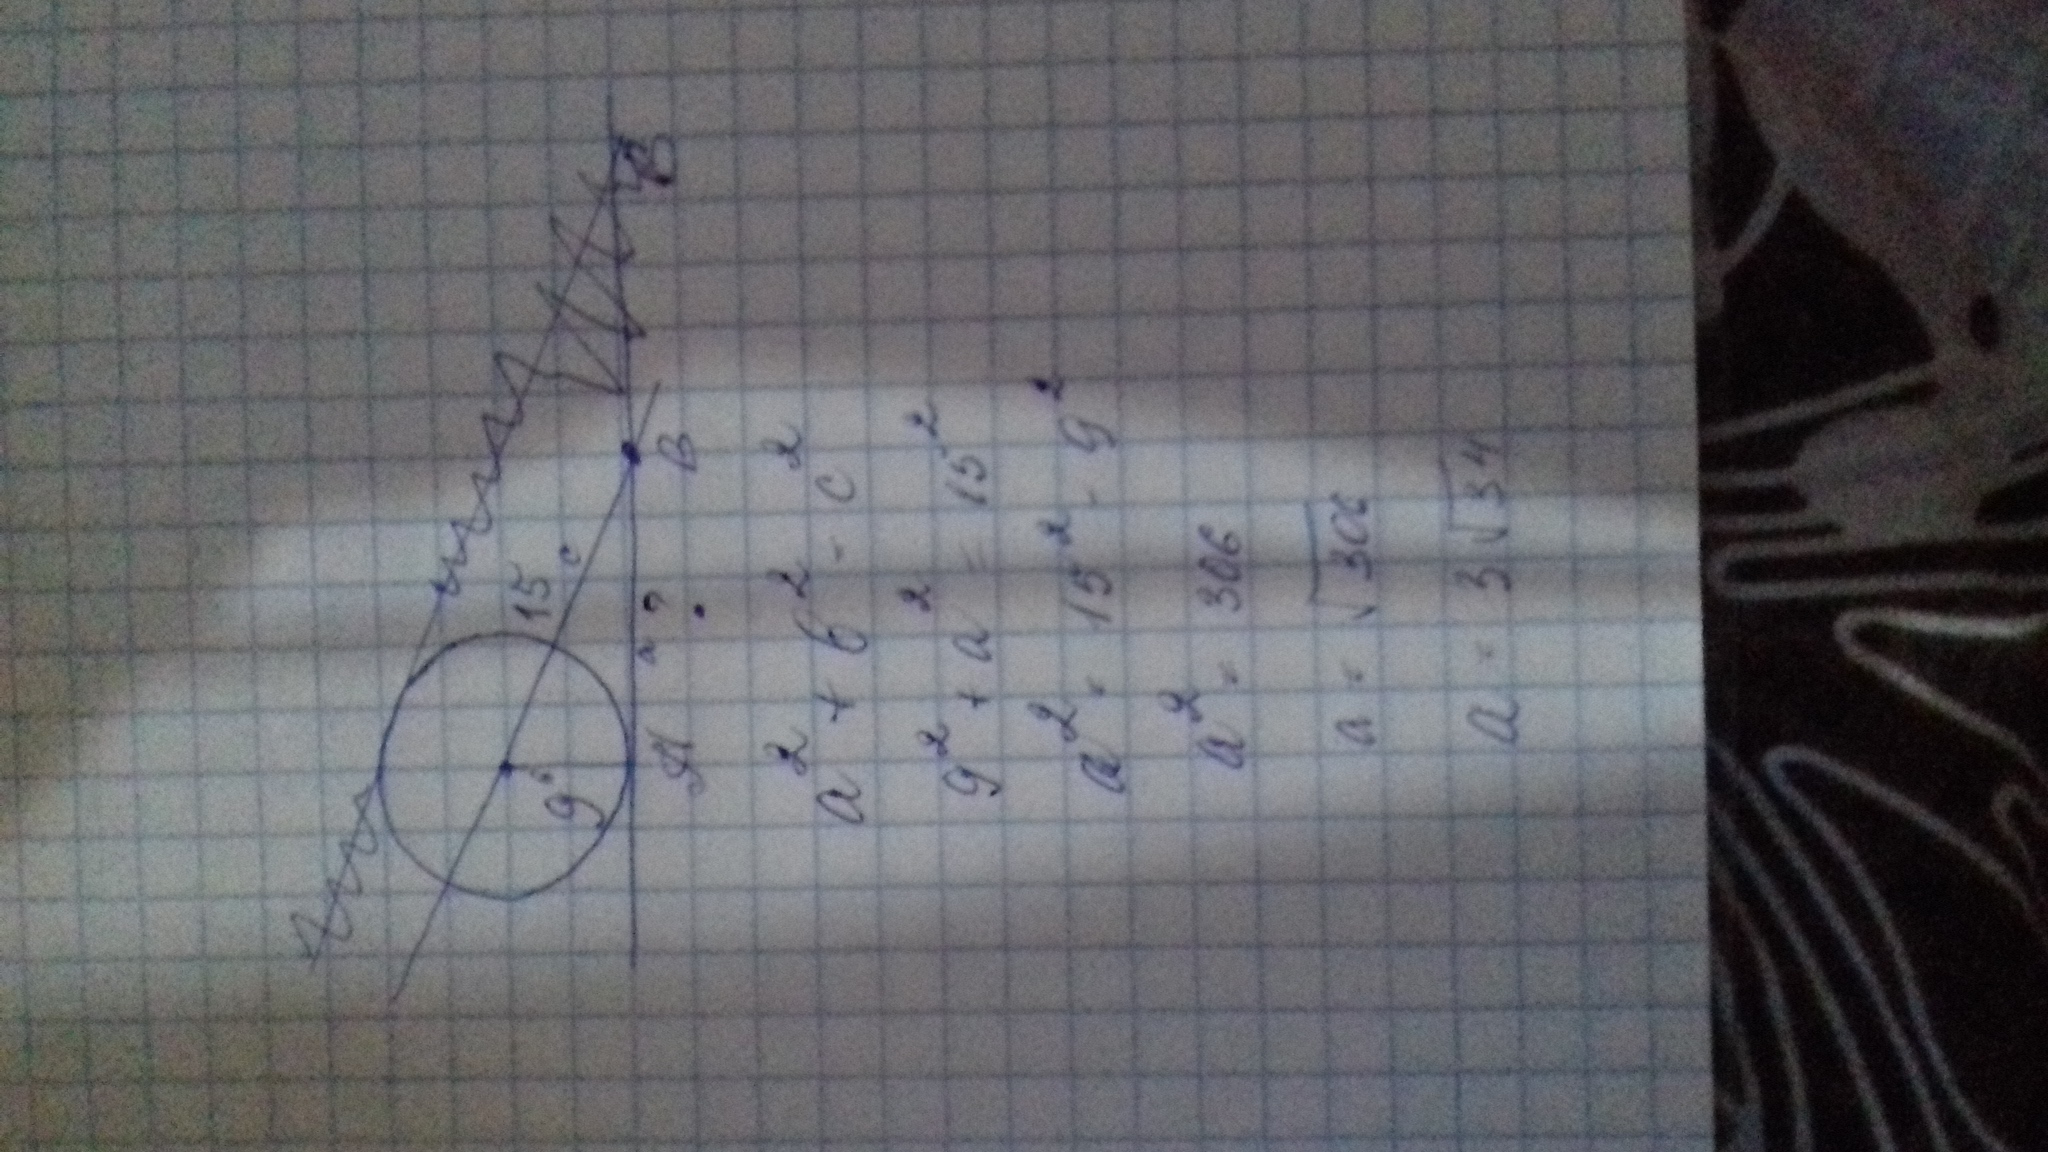 15
c
9
в
a ?
A
B
B
a² + в² = c²
9² + a² = 15²
a² = 15² - 9²
a² = 306
a = √306
a = 3√34